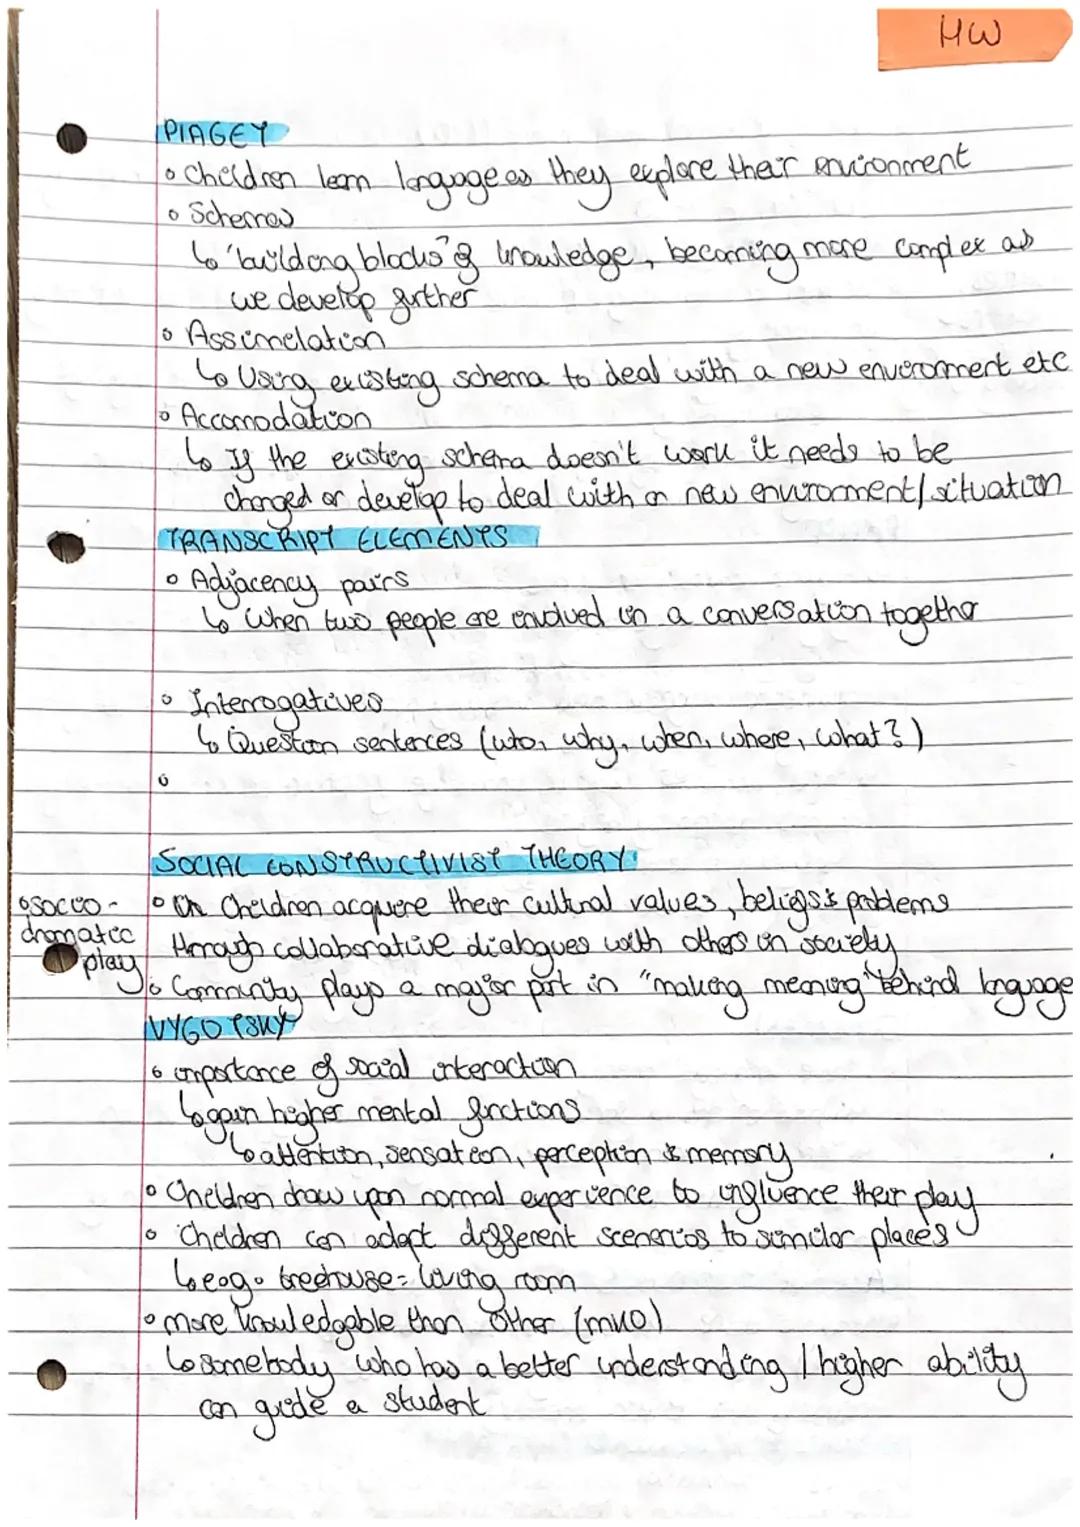 HW
PIAGEY
• Children learn language as they explore their environment
• Schemas
↳ 'building blocks' of knowledge, becoming more complex as
we develop further
• Assimelation
↳ Using existing schema to deal with a new enviroment etc
• Accomodation
↳ If the existing schema doesn't work it needs to be
changed or develop to deal with a new enviroment/situation
TRANSCRIPT ELEMENTS
• Adjacency pairs
↳ When two people are involved in a conversation together
• Interrogatives
↳ Question sentences (who, why, when, where, what?)
•
SOCIAL CONSTRUCTIVIST THEORY
• Children acquire their cultural values, beliefs & problems
through collaborative dialogues with others in society
• Socio-
dramatic
play
• Community plays a major part in "making meaning" behind language
VYGOTSKY
• importance of social interaction
↳ gain higher mental functions
↳ attention, sensation, perception & memory
• Children draw upon normal experience to influence their play
• Children can adapt different scenerios to similar places
↳ e.g. treehouse = living room
• more knowledgable than other (mko)
↳ somebody who has a better understanding / higher ability
can guide a student